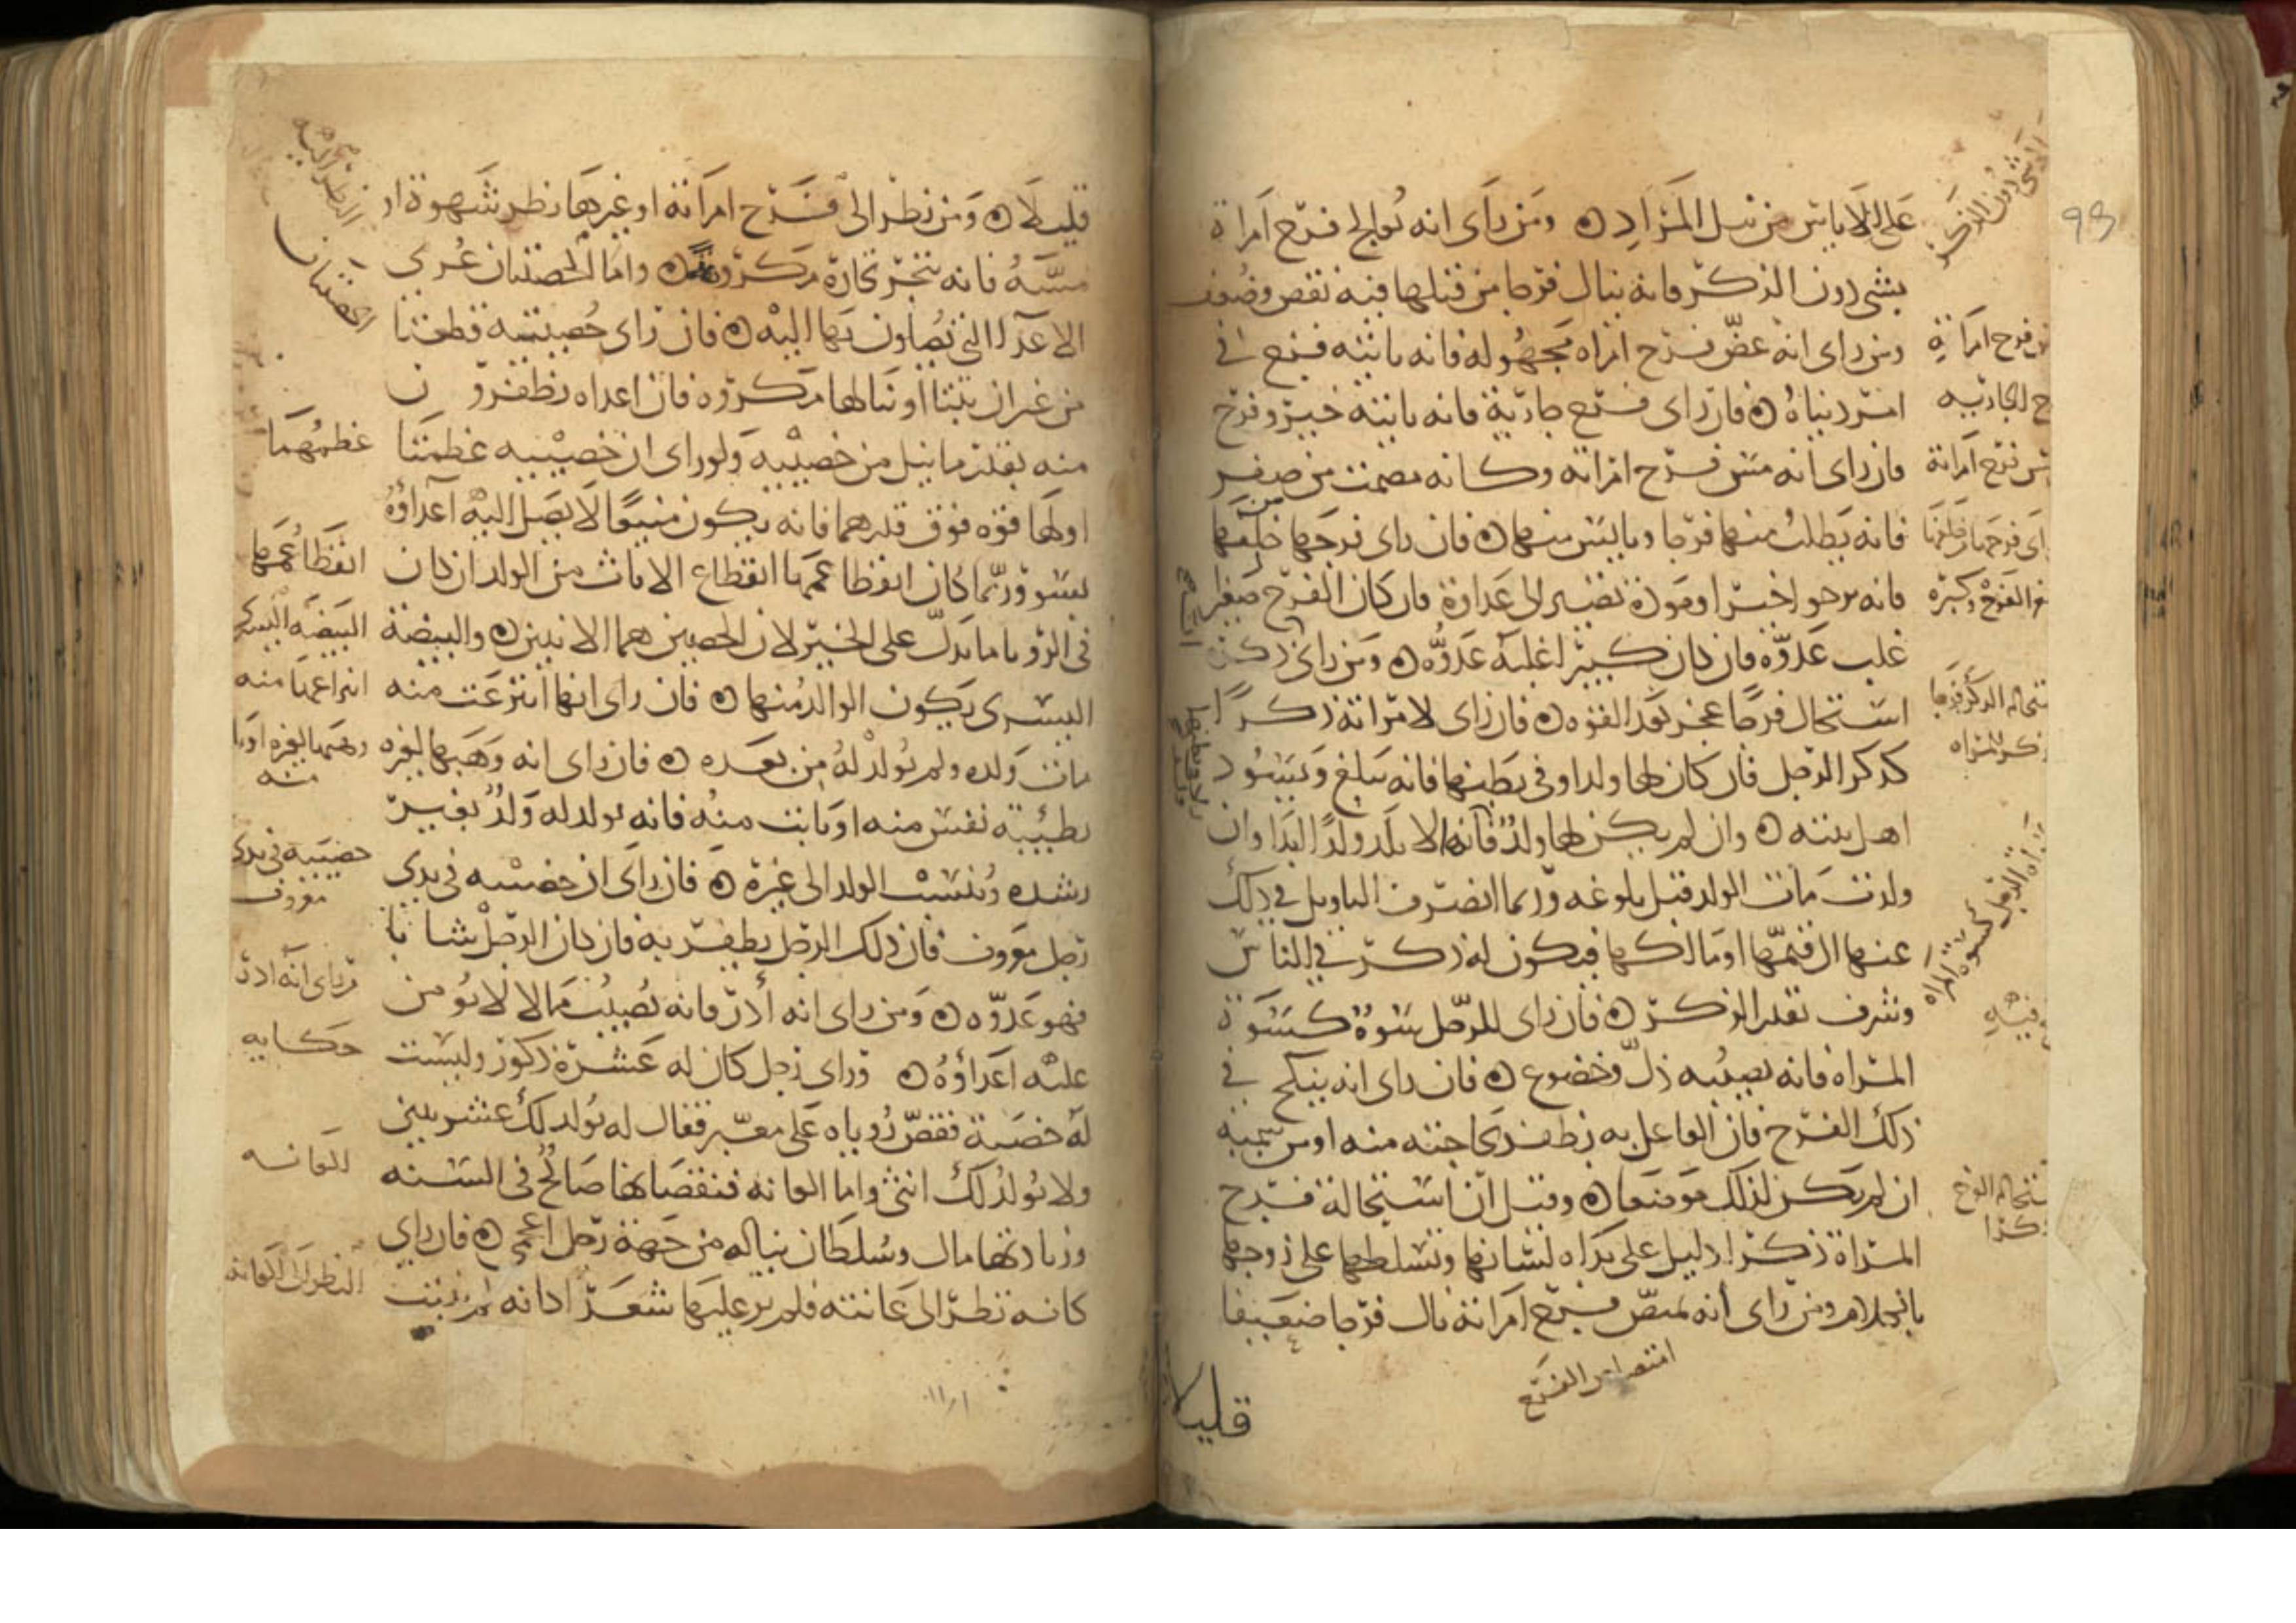 على الاياس من نيل المراد ومن راى انه يوالج فرج امراة
بشي دون الذكر فانه ينال فرجا من قبلها فيه نقص وضعف
ومن راى انه عض فرج امراه مجهوله فانه ياتيه فرج في
امر دنياه فان راى فرج جارية فانه ياتيه خير وفرج
فان راى انه مس فرج امراته وكانه مصمت من صفر
فانه يطلب منها فرجا وياييس منها فان راى فرجها من خلفها
فانه يرجو اخيرا ومودة تصير الى عداوة فان كان الفرج صغيرا
غلب عدوه فان كان كبيرا غلبه عدوه ومن راى ذكره
استحال فرجا عجز بعد القوه فان راى لامراته ذكرا
كذكر الرجل فان كان لها ولد او في بطنها فانه يبلغ ويسود
اهل بيته وان لم يكن لها ولد فانها لا تلد ولدا ابدا وان
ولدت مات الولد قبل بلوغه وربما انصرف التاويل في ذلك
عنها الى قيمها او مالكها فيكون له ذكر في الناس
وشرف بقدر الذكر فان راى للرجل سوة كسوة
المراه فانه يصيبه ذل وخضوع فان راى انه ينكح في
ذلك الفرج فان الفاعل به يظفر بحاجته منه او من سميه
ان لم يكن لذلك موضعا وقيل ان استحالة فرج
المراة ذكرا دليل على بذاه لسانها وتسلطها على زوجها
بالكلام ومن راى انه يمص فرج امراته نال فرجا ضعيفا
قليلا
بشي دون الذكر
فرج امراة
الجاريه
فرج امراته
الفرج وكبره
استحاله الذكر فرجا
ذكر للمراه
استحاله الفرج
ذكرا
امتصاص الفرج
98
قليلا ومن نظر الى فرج امراته او غيرها نظر شهوة او
مسه فانه يتجر تجارة مكروهة واما الخصيتان عرى
الاعدا التي يصلون بها اليه فان راى خصيتيه قطعتا
من غير ان يبينا او نالها مكروه فان اعداه يظفرون
منه بقدر ما نيل من خصيتيه ولو راى ان خصيتيه عظمتا
او لها قوه فوق قدرهما فانه يكون منيعا لا يصل اليه اعداؤه
بسو وربما كان انقطاعهما انقطاع الاناث من الولد ان كان
في الرويا ما يدل على الخير لان الخصيتين هما الانثيين والبيضة
اليسرى يكون الوالد منها فان راى انها انتزعت منه
مات ولده ولم يولد له من بعده فان راى انه وهبها لغيره
بطيبة نفس منه او بانت منه فانه يولد له ولد بغير
رشده وينسب الولد الى غيره فان راى ان خصيتيه في يدي
رجل معروف فان ذلك الرجل يظفر به فان كان الرجل شابا
فهو عدوه ومن راى انه آدر فانه يصيب مالا لا يومن
عليه اعداؤه وراى رجل كان له عشرة ذكور وليست
له خصية فقص روياه على معبر فقال له يولد لك عشر بنين
ولا يولد لك انثى واما العانه فنقصانها صالح في السنه
وزيادتها مال وسلطان يناله من جهة رجل اعجمي فان راى
كانه نظر الى عانته فلم ير عليها شعرا كانه لم ينبت
النظر اليه
الخصيتان
عظمهما
انقطاعهما
البيضه اليسرى
انتزاعها منه
وهبها لغيره او بانت
منه
خصيتيه في يدي
معروف
فراى انه آدر
حكايه
العانه
النظر الى العانه